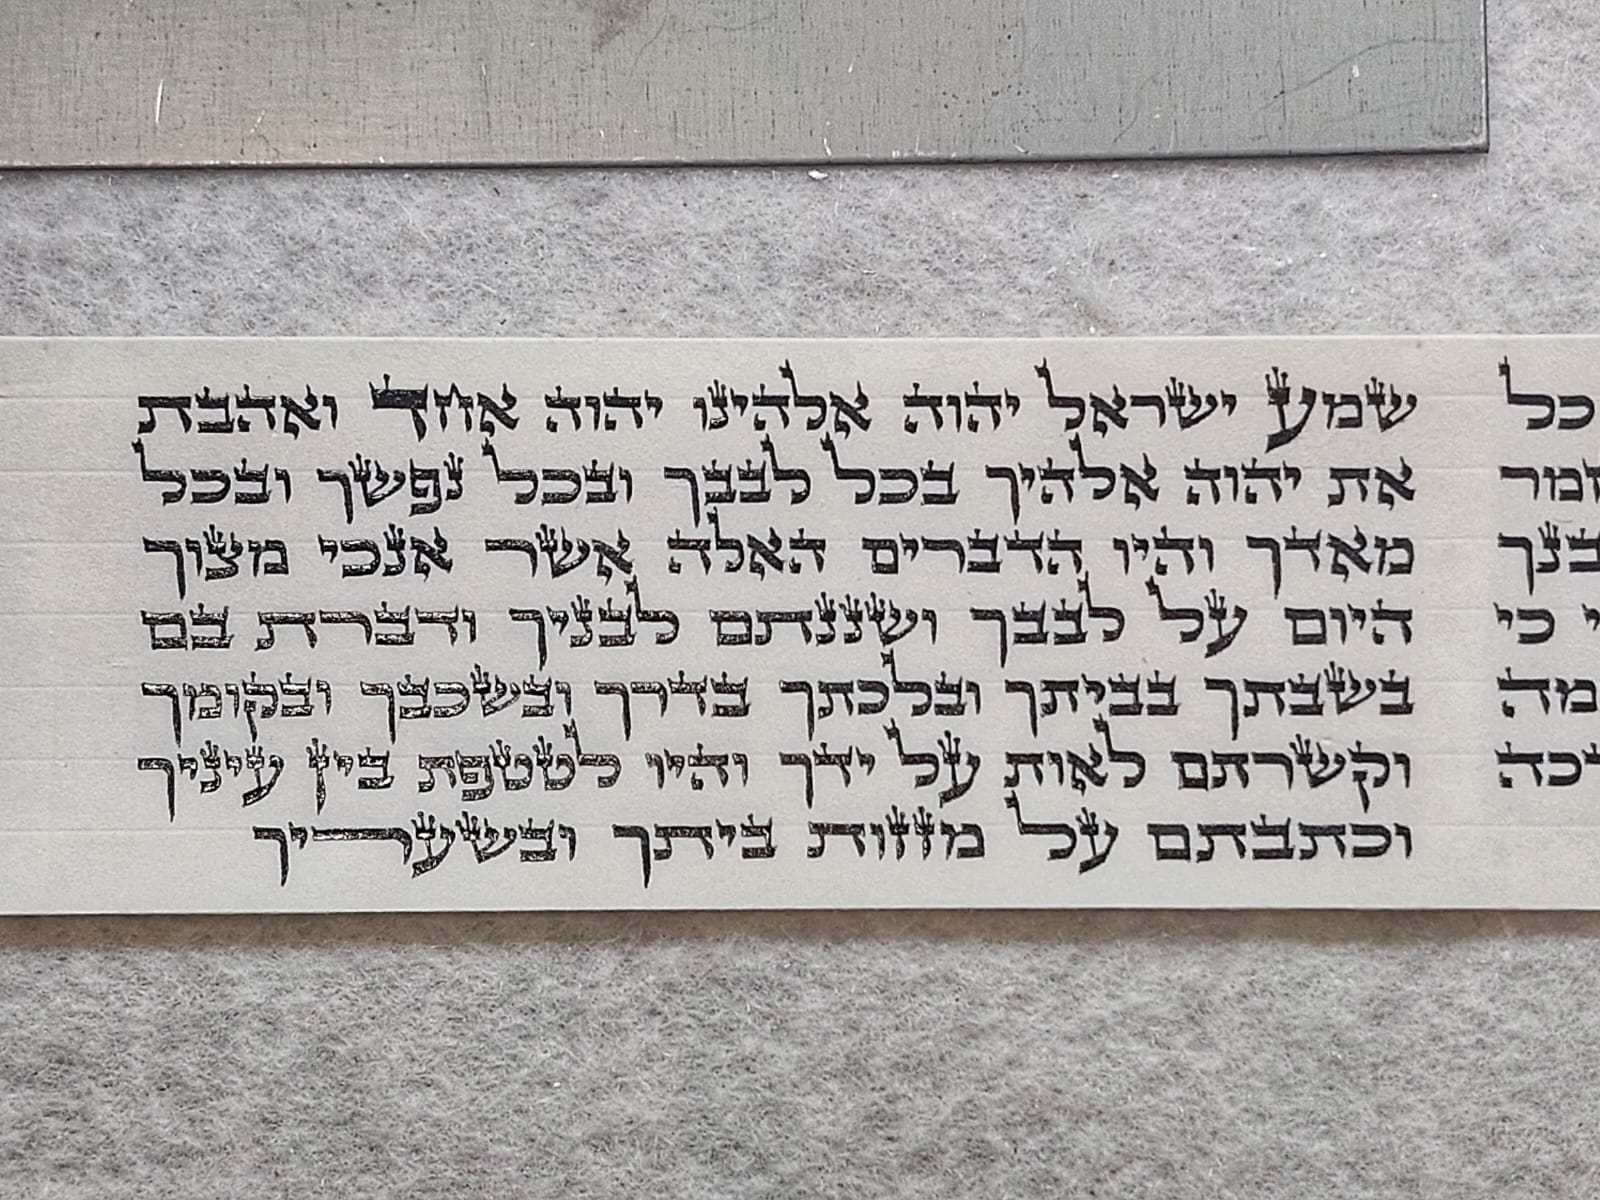 שמע ישראל יהוה אלהינו יהוה אחד ואהבת
את יהוה אלהיך בכל לבבך ובכל נפשך ובכל
מאדך והיו הדברים האלה אשר אנכי מצוך
היום על לבבך ושננתם לבניך ודברת בם
בשבתך בביתך ובלכתך בדרך ובשכבך ובקומך
וקשרתם לאות על ידך והיו לטטפת בין עיניך
וכתבתם על מזזות ביתך ובשעריך
כל
בנך
כי